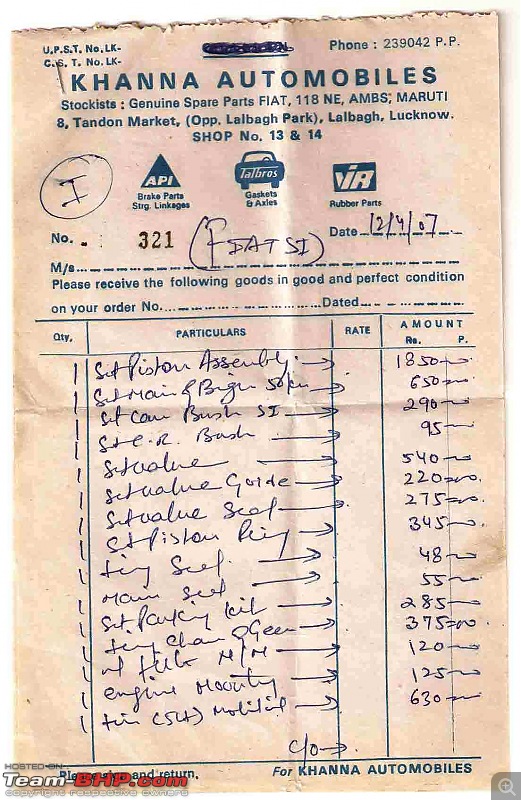 U.P.S.T. No. LK-
C.S.T. No. LK-
Phone : 239042 P.P.
KHANNA AUTOMOBILES
Stockists : Genuine Spare Parts FIAT, 118 NE, AMBS, MARUTI
8, Tandon Market, (Opp. Lalbagh Park), Lalbagh, Lucknow.
SHOP No. 13 & 14
I
API
Brake Parts
Strg. Linkages
Talbros
Gaskets
& Axles
VIR
Rubber Parts
No. 321 (FIAT SI) Date 12/4/07
M/s
Please receive the following goods in good and perfect condition
on your order No. Dated
Qty. PARTICULARS RATE AMOUNT
Rs. P.
1 Set Piston Assembly 1850
1 Set Main & Bigen 650
1 Set Cam Bush SI 290
1 Set C.R. Bush 95
1 Set value 540
1 Set value Guide 220=00
1 Set value Seal 275=00
1 Set Piston Ring 345
1 Seal 48
1 Main Seal 55
1 Set Packing Kit 285
1 Chain & Gear 375=00
1 M/M 120
1 engine 125
1 Tin (5Lt) Mobil 630
C/O
Please sign and return. For KHANNA AUTOMOBILES
HOSTED ON :
Team-BHP.com
copyright respective owners